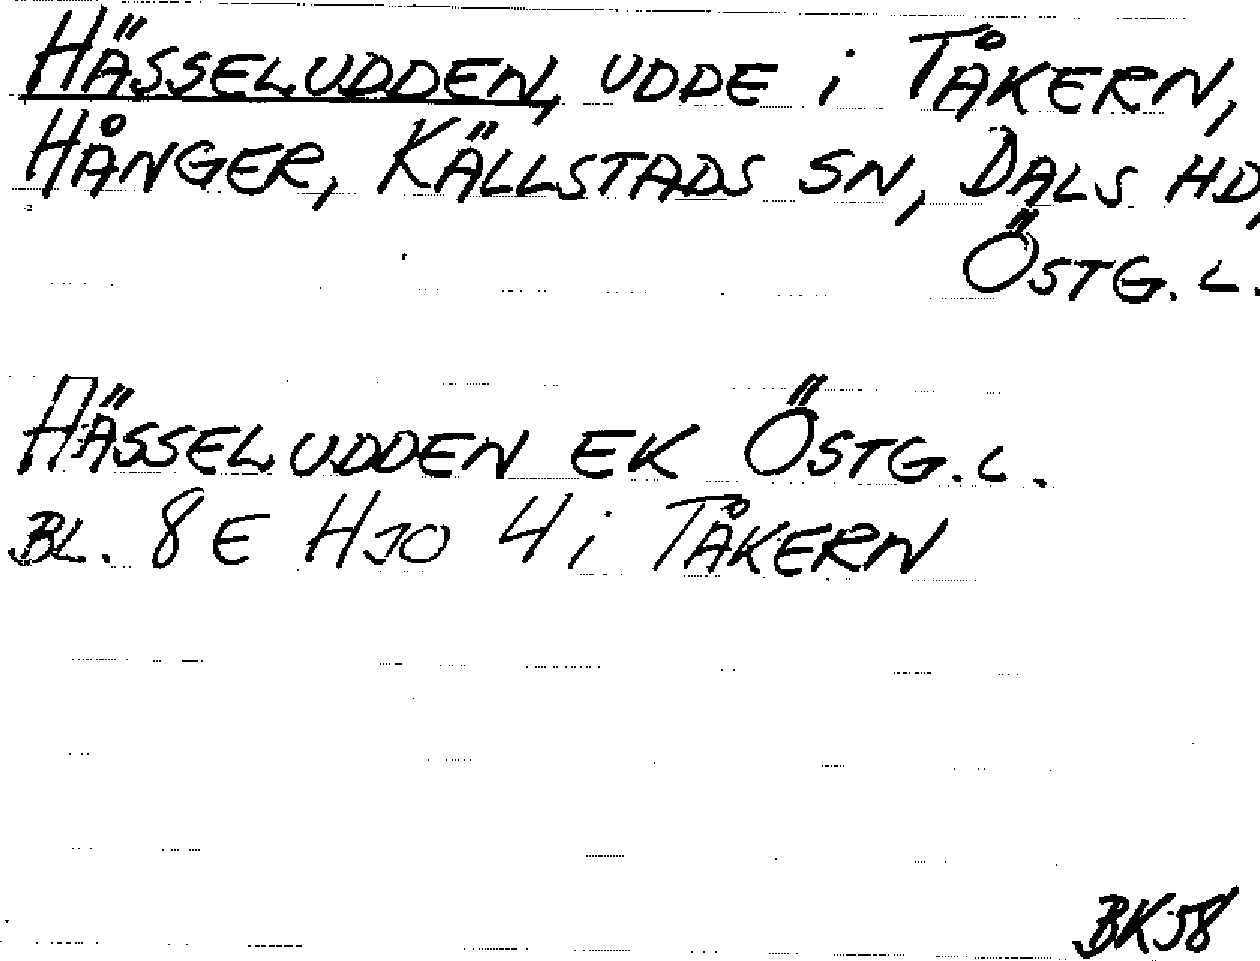 HÄSSELUDDEN, UDDE i TÅKERN,
HÅNGER, KÄLLSTADS SN, DALS HD,
ÖSTG. L.
HÄSSELUDDEN EK ÖSTG. L.
BL. 8 E HJO 4 i TÅKERN
BK58